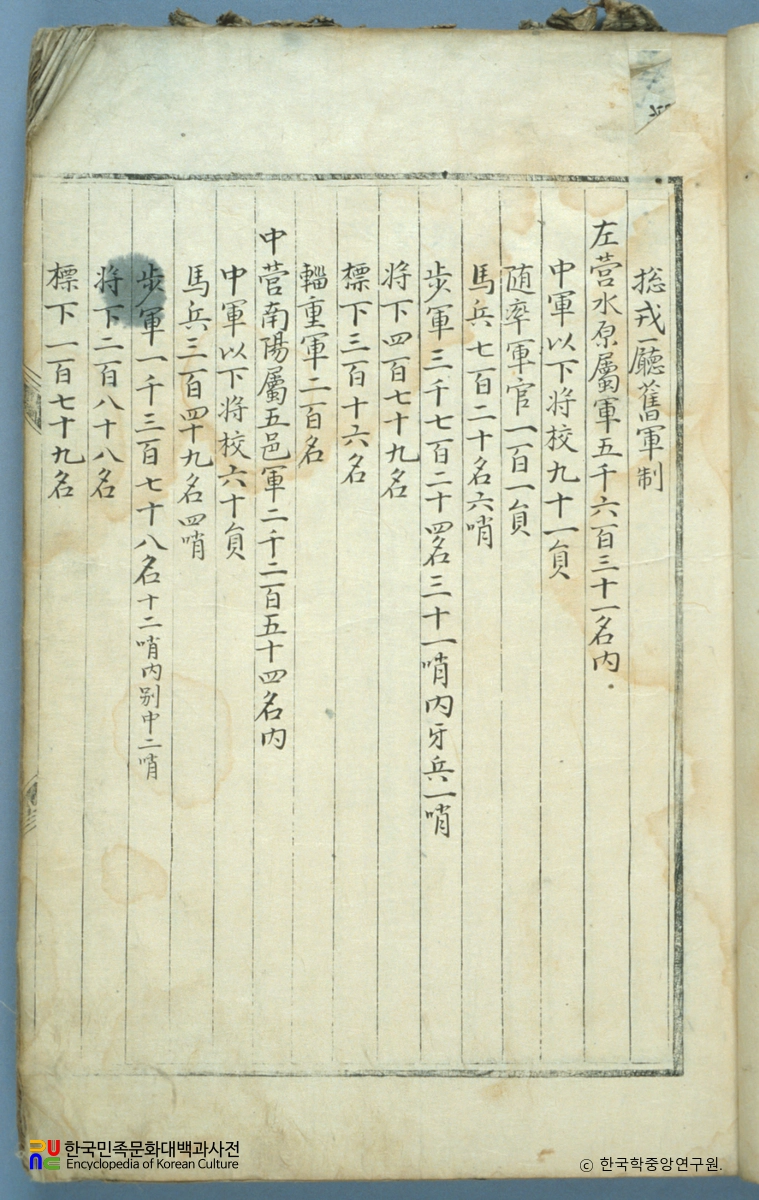 捴戎廳舊軍制
左營水原屬軍五千六百三十一名內
中軍以下將校九十一員
随率軍官一百一員
馬兵七百二十名六哨
步軍三千七百二十四名三十一哨內牙兵一哨
將下四百七十九名
標下三百十六名
輜重軍二百名
中營南陽屬五邑軍二千二百五十四名內
中軍以下將校六十員
馬兵三百四十九名四哨
步軍一千三百七十八名十二哨內別中二哨
將下二百八十八名
標下一百七十九名
한국민족문화대백과사전
Encyclopedia of Korean Culture
© 한국학중앙연구원.